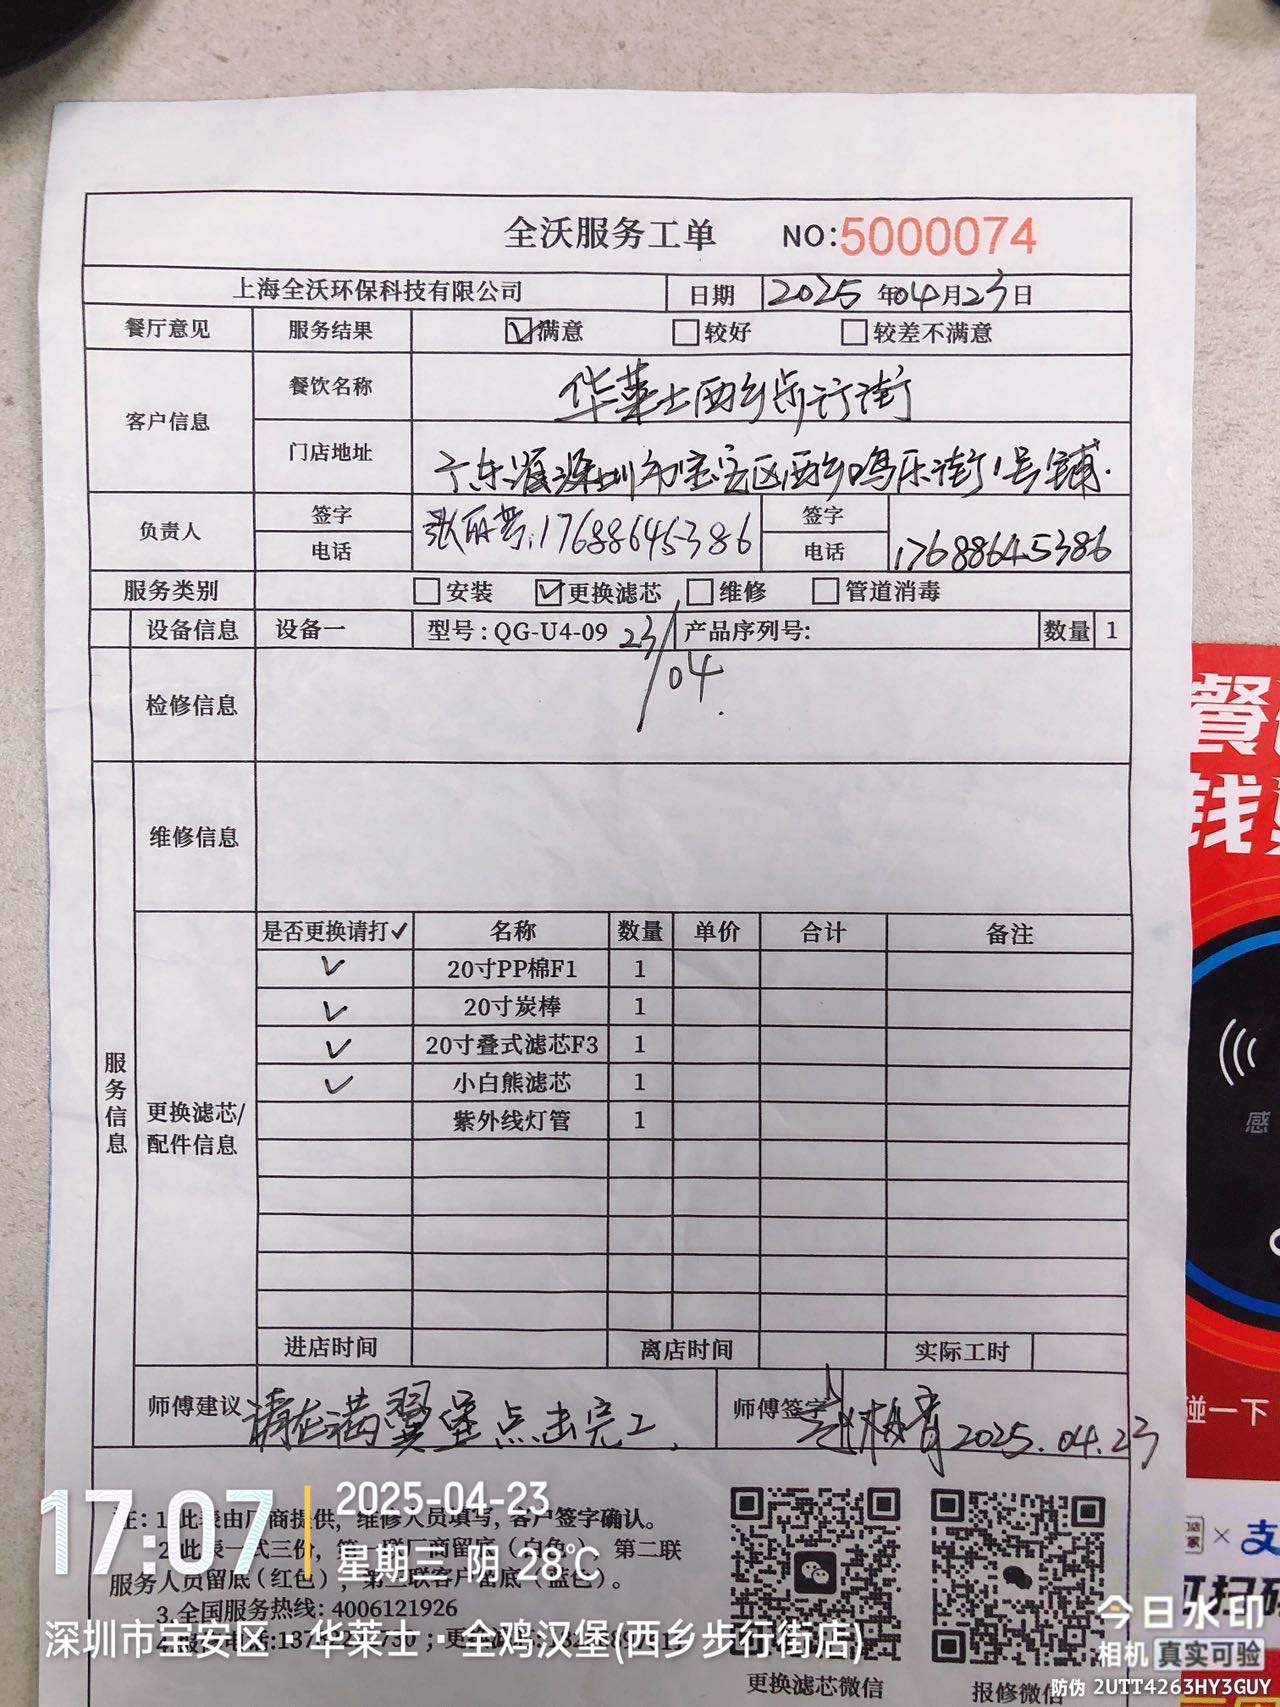 全沃服务工单 NO:5000074
上海全沃环保科技有限公司 日期 2025年04月23日
餐厅意见 服务结果 ☑满意 □较好 □较差不满意
客户信息 餐饮名称 华莱士西乡步行街
门店地址 广东深圳市宝安区西乡鸣乐街1号铺.
负责人 签字 签字
电话 17688645386 电话 17688645386
服务类别 □安装 ☑更换滤芯 □维修 □管道消毒
设备信息 设备一 型号:QG-U4-09 产品序列号: 数量 1
23/04.
检修信息
维修信息
服务信息
更换滤芯/配件信息
是否更换请打✓ 名称 数量 单价 合计 备注
✓ 20寸PP棉F1 1
✓ 20寸炭棒 1
✓ 20寸叠式滤芯F3 1
✓ 小白熊滤芯 1
紫外线灯管 1
进店时间 离店时间 实际工时
师傅建议 请在满翼堡点击完工 师傅签字 2025.04.23
注: 1.此表由厂商提供, 维修人员填写, 客户签字确认。
2.此表一式三份, 第一联厂商留底(白色), 第二联
服务人员留底(红色), 第三联客户留底(蓝色)。
3.全国服务热线: 4006121926
更换滤芯微信 报修微信
17:07
2025-04-23
星期三 阴 28℃
深圳市宝安区·华莱士·全鸡汉堡(西乡步行街店)
今日水印
相机 真实可验
防伪 2UTT4263HY3GUY
餐
钱
感
碰一下
支
扫码